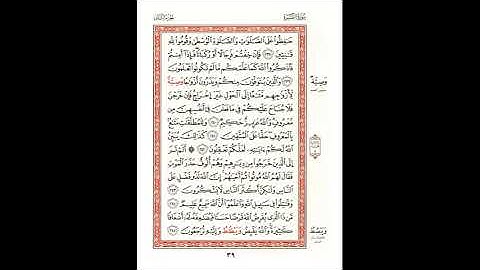 سُورَةُ البَقَرَةِ
حَٰفِظُوا۟ عَلَى ٱلصَّلَوَٰتِ وَٱلصَّلَوٰةِ ٱلْوُسْطَىٰ وَقُومُوا۟ لِلَّهِ
قَٰنِتِينَ ٢٣٨ فَإِنْ خِفْتُمْ فَرِجَالًا أَوْ رُكْبَانًا فَإِذَآ أَمِنتُمْ
فَٱذْكُرُوا۟ ٱللَّهَ كَمَا عَلَّمَكُم مَّا لَمْ تَكُونُوا۟ تَعْلَمُونَ
٢٣٩ وَٱلَّذِينَ يُتَوَفَّوْنَ مِنكُمْ وَيَذَرُونَ أَزْوَٰجًا وَصِيَّةً
لِّأَزْوَٰجِهِم مَّتَٰعًا إِلَى ٱلْحَوْلِ غَيْرَ إِخْرَاجٍ فَإِنْ خَرَجْنَ
فَلَا جُنَاحَ عَلَيْكُمْ فِى مَا فَعَلْنَ فِىٓ أَنفُسِهِنَّ مِن
مَّعْرُوفٍ وَٱللَّهُ عَزِيزٌ حَكِيمٌ ٢٤٠ وَلِلْمُطَلَّقَٰتِ مَتَٰعٌۢ
بِٱلْمَعْرُوفِ حَقًّا عَلَى ٱلْمُتَّقِينَ ٢٤١ كَذَٰلِكَ يُبَيِّنُ
ٱللَّهُ لَكُمْ ءَايَٰتِهِۦ لَعَلَّكُمْ تَعْقِلُونَ ٢٤٢ ۞ أَلَمْ تَرَ
إِلَى ٱلَّذِينَ خَرَجُوا۟ مِن دِيَٰرِهِمْ وَهُمْ أُلُوفٌ حَذَرَ ٱلْمَوْتِ
فَقَالَ لَهُمُ ٱللَّهُ مُوتُوا۟ ثُمَّ أَحْيَٰهُمْ إِنَّ ٱللَّهَ لَذُو فَضْلٍ عَلَى
ٱلنَّاسِ وَلَٰكِنَّ أَكْثَرَ ٱلنَّاسِ لَا يَشْكُرُونَ ٢٤٣
وَقَٰتِلُوا۟ فِى سَبِيلِ ٱللَّهِ وَٱعْلَمُوٓا۟ أَنَّ ٱللَّهَ سَمِيعٌ عَلِيمٌ ٢٤٤
مَّن ذَا ٱلَّذِى يُقْرِضُ ٱللَّهَ قَرْضًا حَسَنًا فَيُضَٰعِفَهُۥ لَهُۥٓ أَضْعَافًا
كَثِيرَةً وَٱللَّهُ يَقْبِضُ وَيَبْصُۜطُ وَإِلَيْهِ تُرْجَعُونَ ٢٤٥
وَصِيَّةٌ
وَيَبْصُطُ
٣٩